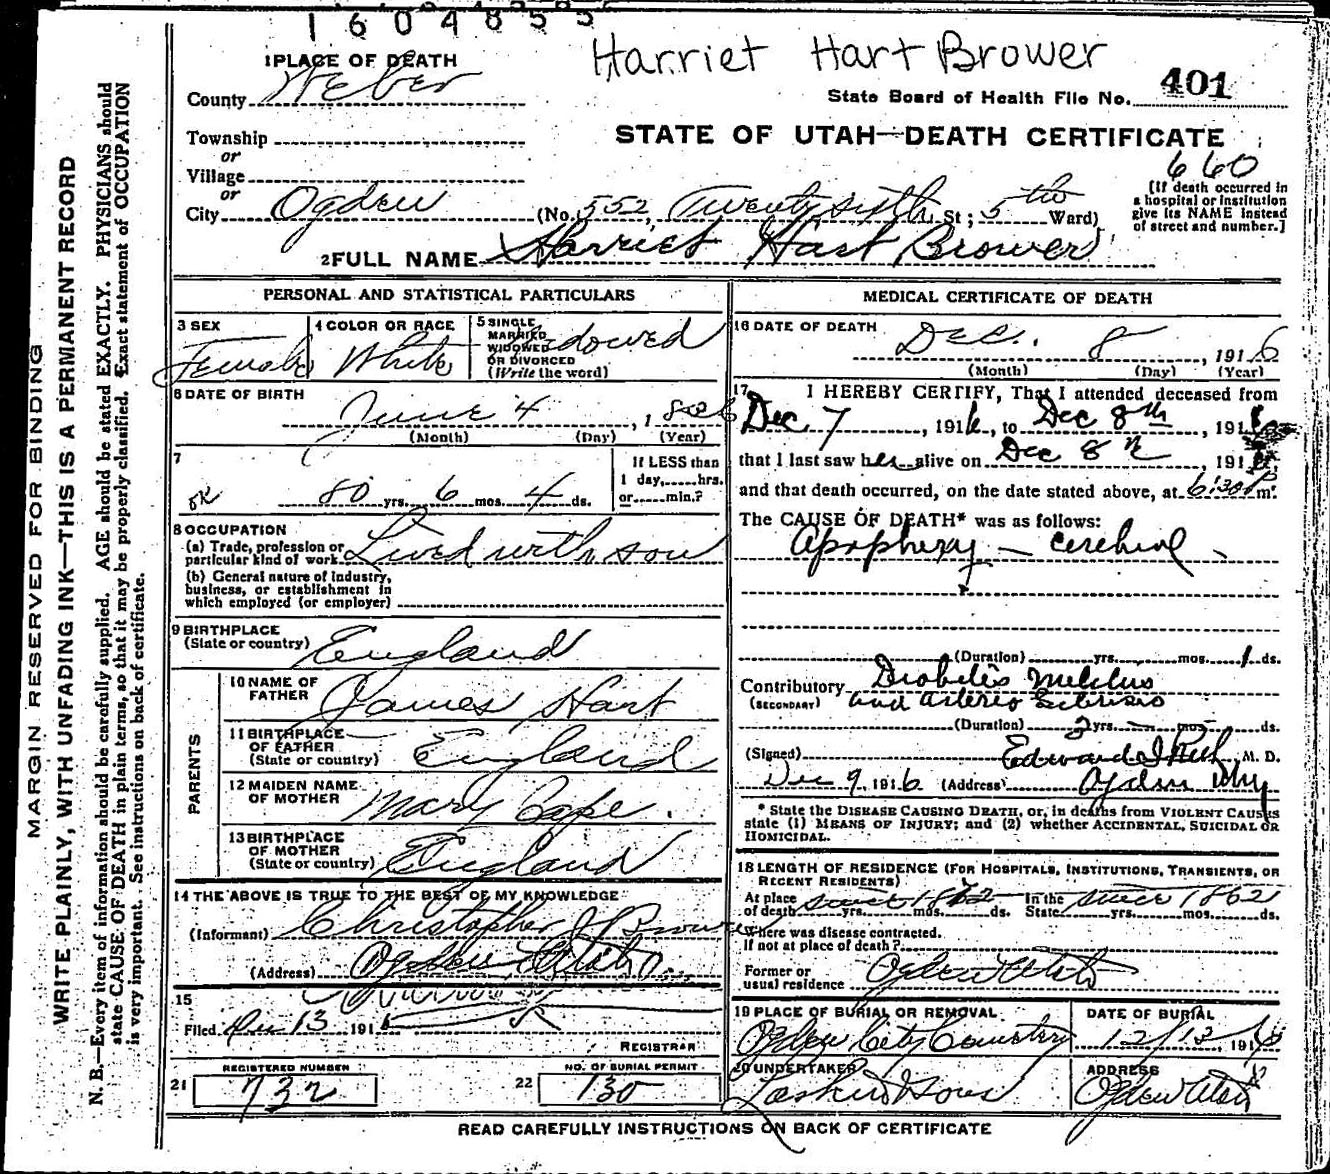 1604855
Harriet Hart Brower
1 PLACE OF DEATH
County Weber
State Board of Health File No. 401
STATE OF UTAH—DEATH CERTIFICATE
Township
or
Village
or
660
[If death occurred in a hospital or institution give its NAME instead of street and number.]
City Ogden (No. 552, Twenty sixth St; 5th Ward)
2 FULL NAME Harriet Hart Brower
PERSONAL AND STATISTICAL PARTICULARS
3 SEX Female
4 COLOR OR RACE White
5 SINGLE MARRIED WIDOWED OR DIVORCED (Write the word) Widowed
6 DATE OF BIRTH June 4, 1826
(Month) (Day) (Year)
7
80 yrs. 6 mos. 4 ds.
If LESS than
1 day,.....hrs.
or......min.?
8 OCCUPATION
(a) Trade, profession or particular kind of work Lived with son
(b) General nature of industry, business, or establishment in which employed (or employer)
9 BIRTHPLACE (State or country) England
PARENTS
10 NAME OF FATHER James Hart
11 BIRTHPLACE OF FATHER (State or country) England
12 MAIDEN NAME OF MOTHER Mary Cape.
13 BIRTHPLACE OF MOTHER (State or country) England
14 THE ABOVE IS TRUE TO THE BEST OF MY KNOWLEDGE
(Informant) Christopher J Brower
(Address) Ogden Utah
15
Filed Dec 13 1916
REGISTRAR
21 REGISTERED NUMBER 732
22 NO. OF BURIAL PERMIT 130
MEDICAL CERTIFICATE OF DEATH
16 DATE OF DEATH Dec. 8, 1916
(Month) (Day) (Year)
17 I HEREBY CERTIFY, That I attended deceased from
Dec 7, 1916, to Dec 8th, 191
that I last saw her alive on Dec 8, 191
and that death occurred, on the date stated above, at 6:30 P m.
The CAUSE OF DEATH* was as follows:
Apoplexy — cerebral
(Duration) yrs. mos. 1 ds.
Contributory Diabetes Mellitus
(SECONDARY) and arterio Sclerosis
(Duration) 2 yrs. mos. ds.
(Signed) Edward I M. D.
Dec 9, 1916 (Address) Ogden
* State the DISEASE CAUSING DEATH, or, in deaths from VIOLENT CAUSES state (1) MEANS OF INJURY; and (2) whether ACCIDENTAL, SUICIDAL OR HOMICIDAL.
18 LENGTH OF RESIDENCE (FOR HOSPITALS, INSTITUTIONS, TRANSIENTS, OR RECENT RESIDENTS)
At place of death since 1862 yrs. mos. ds. In the State since 1862 yrs. mos. ds.
Where was disease contracted.
If not at place of death?
Former or usual residence Ogden Utah
19 PLACE OF BURIAL OR REMOVAL Ogden City Cemetery
DATE OF BURIAL 12/13, 1916
20 UNDERTAKER Larkin & Sons
ADDRESS Ogden Utah
READ CAREFULLY INSTRUCTIONS ON BACK OF CERTIFICATE
MARGIN RESERVED FOR BINDING
WRITE PLAINLY, WITH UNFADING INK—THIS IS A PERMANENT RECORD
N. B.—Every item of information should be carefully supplied. AGE should be stated EXACTLY. PHYSICIANS should
state CAUSE OF DEATH in plain terms, so that it may be properly classified. Exact statement of OCCUPATION
is very important. See instructions on back of certificate.